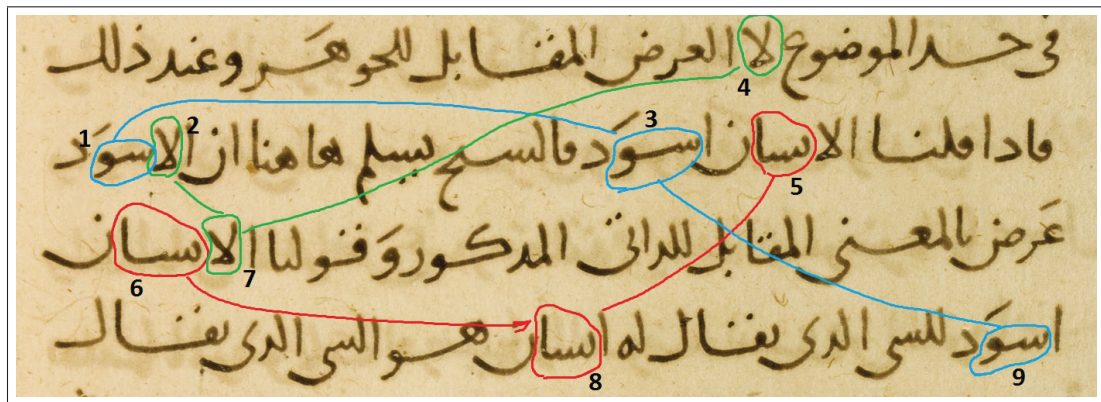 في حد الموضوع لا العرض المقابل للجوهر وعند ذلك
4
1 2 3
فاذا قلنا الانسان اسوَد فالشيخ يسلم هاهنا ان الاسوَد
5
عَرض بالمعنى المقابل للذاتي المذكور وَقولنا الانسان
6 7
اسوَد للشي الذي يقال له انسان هو الشي الذي يقال
8 9